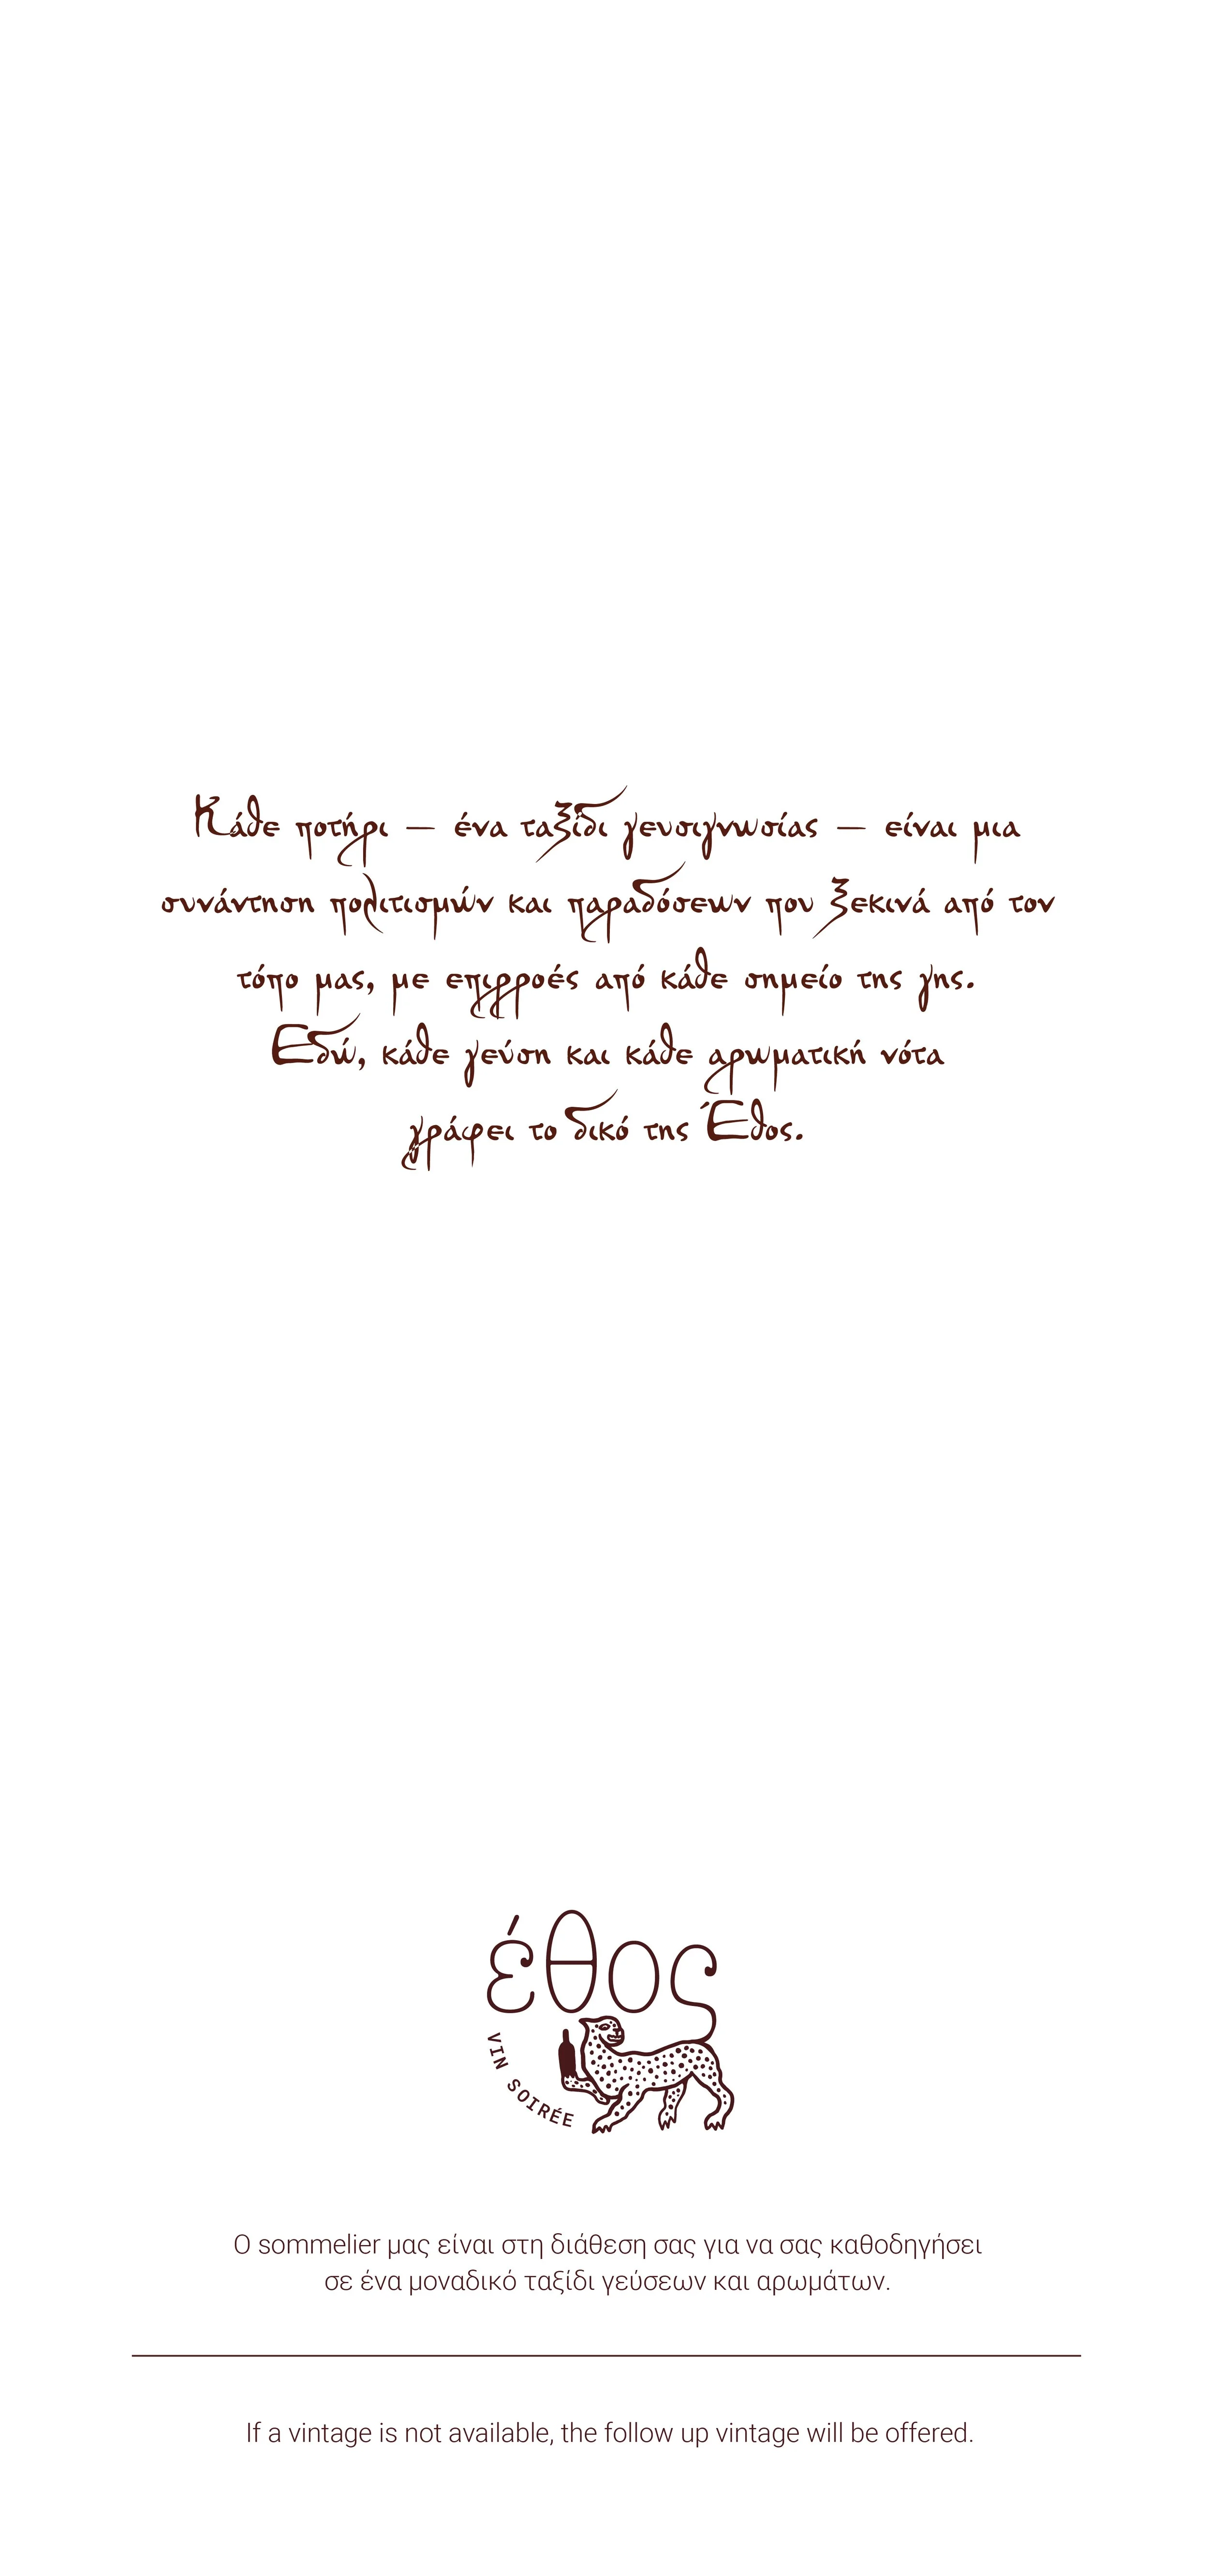 Κάθε ποτήρι — ένα ταξίδι γευσιγνωσίας — είναι μια
συνάντηση πολιτισμών και παραδόσεων που ξεκινά από τον
τόπο μας, με επιρροές από κάθε σημείο της γης.
Εδώ, κάθε γεύση και κάθε αρωματική νότα
γράφει το δικό της Έθος.
έθος
VIN SOIRÉE
Ο sommelier μας είναι στη διάθεση σας για να σας καθοδηγήσει
σε ένα μοναδικό ταξίδι γεύσεων και αρωμάτων.
If a vintage is not available, the follow up vintage will be offered.